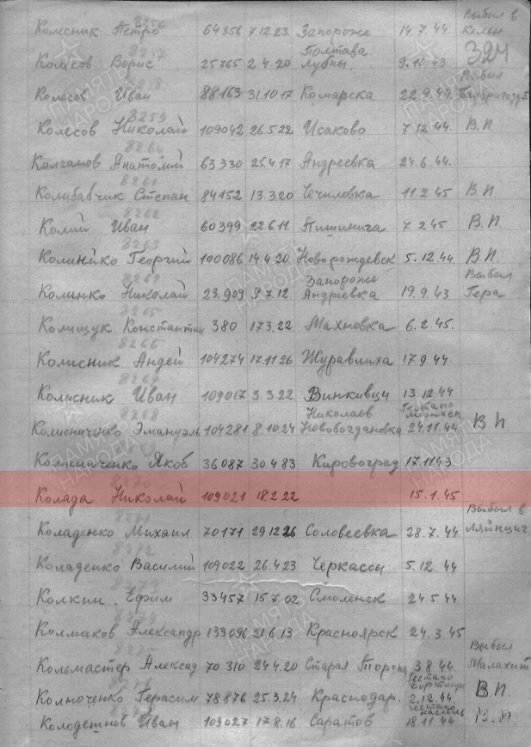 Колесник Петро 64356 7.12.23 Запороже 14.7.44 Выбыл в Кельн
324
Колесов Борис 25765 2.4.20 Полтава Лубны 9.11.43
Колесов Иван 88163 31.10.17 Комарска 22.9.44 Выбыл
8259
Колесов Николай 109042 26.5.22 Исаково 7.12.44 В.П.
8260
Колганов Анатолий 63330 25.4.17 Андреевка 24.6.44.
Колибабчик Степан 84152 13.3.20 Чечиловка 11.2.45 В.П.
8262
Колий Иван 60399 22.6.11 7.2.45 В.П.
8263
Колинйко Георгий 100086 14.4.20 Новорождевск 5.12.44 В.П.
8264
Колинко Николай 23.909 3.7.12 Запороже Андриевка 19.9.43 Выбыл Гера
8265
Колищук Константин 380 17.3.22 Махновка 6.2.45.
8266
Колисник Андей 104274 17.11.26 Журавлиха 17.9.44
Колисник Иван 109017 3.3.22 Винкивци 13.12.44
8268
Колисниченко Эмануэль 104281 8.10.24 Николаев Нововогдановка Гестапо 24.11.44 В П
Колисниченко Якоб 36087 30.4.83 Кировоград 17.11.43
Колада Николай 109021 18.2.22 15.1.45
Коладенко Михаил 70171 29.12.26 Соловеевка 28.7.44 Выбыл в Ляйпциг
8272
Коладенко Василий 109022 26.4.23 Черкассы 5.12.44
Колкин Ефим 33457 15.7.02 Смоленск 24.5.44
Колмаков Александр 139096 21.6.13 Красноярск 24.3.45
8275
Кольмастер Алексад 70310 24.4.20 Старая 3.8.44 Выбыл Малахит
Колноченко Герасим 78876 25.3.24 Краснодар. Гестапо 2.12.44 В П.
Колодешнов Иван 109027 17.8.16 Саратов Гестапо 18.11.44 В.П.
ПАМЯТЬ НАРОДА